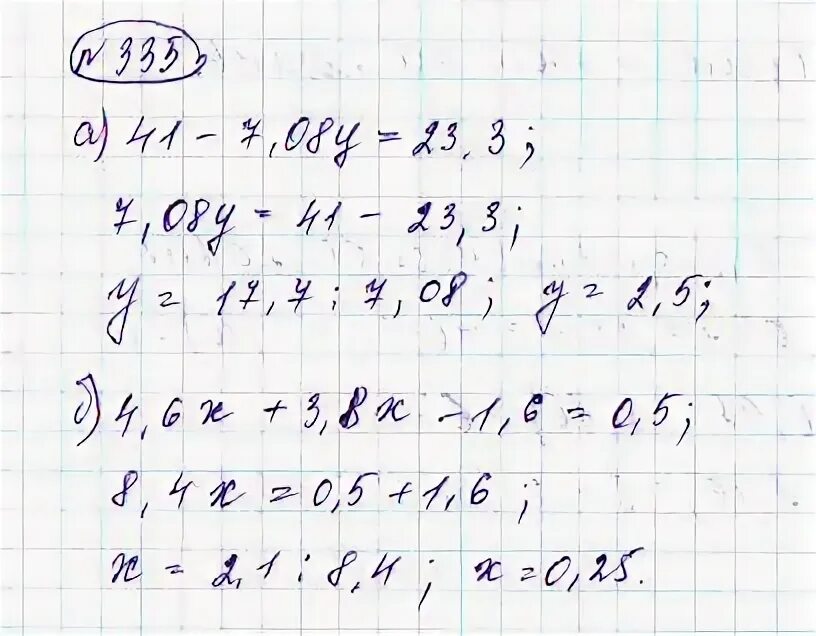 № 335.
а) 41 - 7,08y = 23,3;
7,08y = 41 - 23,3;
y = 17,7 : 7,08; y = 2,5;
б) 4,6x + 3,8x - 1,6 = 0,5;
8,4x = 0,5 + 1,6;
x = 2,1 : 8,4; x = 0,25.